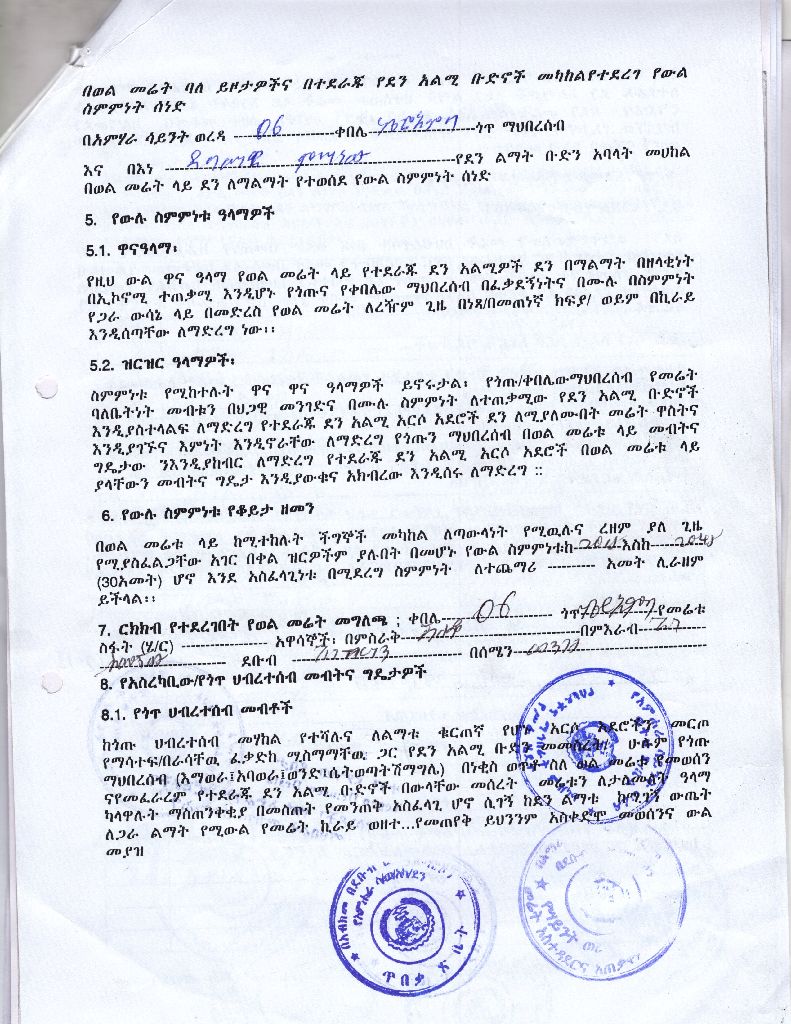 በወል መሬት ባለ ይዞታዎችና በተደራጁ የደን አልሚ ቡድኖች መካከልየተደረገ የውል
ስምምነት ሰነድ
በአምሃራ ሳይንት ወረዳ ---06---ቀበሌ------ጎጥ ማህበረሰብ
እና በእነ ------የደን ልማት ቡድን አባላት መሀከል
በወል መሬት ላይ ደን ለማልማት የተወሰደ የውል ስምምነት ሰነድ
5. የውሉ ስምምነቱ ዓላማዎች
5.1. ዋናዓላማ፡
የዚህ ውል ዋና ዓላማ የወል መሬት ላይ የተደራጁ ደን አልሚዎች ደን በማልማት በዘላቂነት
በኢኮኖሚ ተጠቃሚ እንዲሆኑ የጎጡና የቀበሌው ማህበረሰብ በፈቃደኝነትና በሙሉ በስምምነት
የጋራ ውሳኔ ላይ በመድረስ የወል መሬት ለረዥም ጊዜ በነጻ/በመጠነኛ ክፍያ/ ወይም በኪራይ
እንዲሰጣቸው ለማድረግ ነው፡፡
5.2. ዝርዝር ዓላማዎች፡
ስምምነቱ የሚከተሉት ዋና ዋና ዓላማዎች ይኖሩታል፡ የጎጡ/ቀበሌውማህበረሰብ የመሬት
ባለቤትነት መብቱን በህጋዊ መንገድና በሙሉ ስምምነት ለተጠቃሚው የደን አልሚ ቡድኖች
እንዲያስተላልፍ ለማድረግ የተደራጁ ደን አልሚ አርሶ አደሮች ደን ለሚያለሙበት መሬት ዋስትና
እንዲያገኙና እምነት እንዲኖራቸው ለማድረግ የጎጡን ማህበረሰብ በወል መሬቱ ላይ መብትና
ግዴታው ንእንዲያከብር ለማድረግ የተደራጁ ደን አልሚ አርሶ አደሮች በወል መሬቱ ላይ
ያላቸውን መብትና ግዴታ እንዲያውቁና አክብረው እንዲሰሩ ለማድረግ ::
6. የውሉ ስምምነቱ የቆይታ ዘመን
በወል መሬቱ ላይ ከሚተከሉት ችግኞች መካከል ለጣውላነት የሚዉሉና ረዘም ያለ ጊዜ
የሚያስፈልጋቸው አገር በቀል ዝርዎችም ያሉበት በመሆኑ የውል ስምምነቱከ------እስከ------
(30አመት) ሆኖ እንደ አስፈላጊነቱ በሚደረግ ስምምነት ለተጨማሪ ---------- አመት ሊራዘም
ይችላል፡፡
7. ርክክብ የተደረገበት የወል መሬት መግለጫ ; ቀበሌ---06--- ጎጥ------የመሬቱ
ስፋት (ሄ/ር) ------------------ አዋሳኞች፡ በምስራቅ------በምእራብ------
------ ደቡብ ------ በሰሜን------
8. የአስረካቢው/የጎጥ ህብረተሰብ መብትና ግዴታዎች
8.1. የጎጥ ህብረተሰብ መብቶች
ከጎጡ ህብረተሰብ መሃከል የተሻሉና ለልማቱ ቁርጠኛ የሆኑ አርሶ አደሮችን መርጦ
የማሳተፍ/በራሳቸዉ ፈቃድከ ሚስማማቸዉ ጋር የደን አልሚ ቡድን ሁሉም የጎጡ
ማህበረሰብ (እማወራ፤አባወራ፤ወንድ፤ሴትወጣት፡ሽማግሌ) በነቂስ ወጥቶ ስለ ወል መሬቱ የመወሰን
ናየመፈራረም የተደራጁ ደን አልሚ ቡድኖች በውላቸው መሰረት መሬቱን ለታሰመለት ዓላማ
ካላዋሉት ማስጠንቀቂያ በመስጠት የመንጠቅ አስፈላጊ ሆኖ ሲገኝ ከደን ልማቱ ከሚገኝ ውጤት
ለጋራ ልማት የሚውል የመሬት ኪራይ ወዘተ...የመጠየቅ ይህንንም አስቀድሞ መወሰንና ውል
መያዝ
ጥበቃ ጽ ቤት